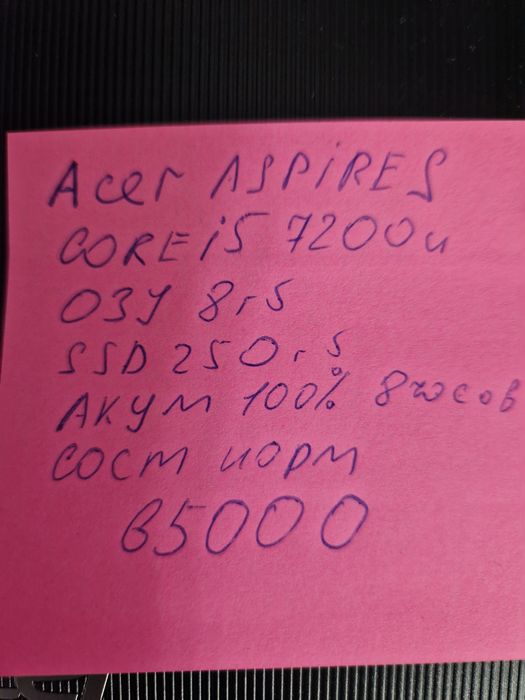 Acer ASPIRE S
CORE i5 7200u
ОЗУ 8гб
SSD 250гб
АКУМ 100% 8 часов
СОСТ НОРМ
65000